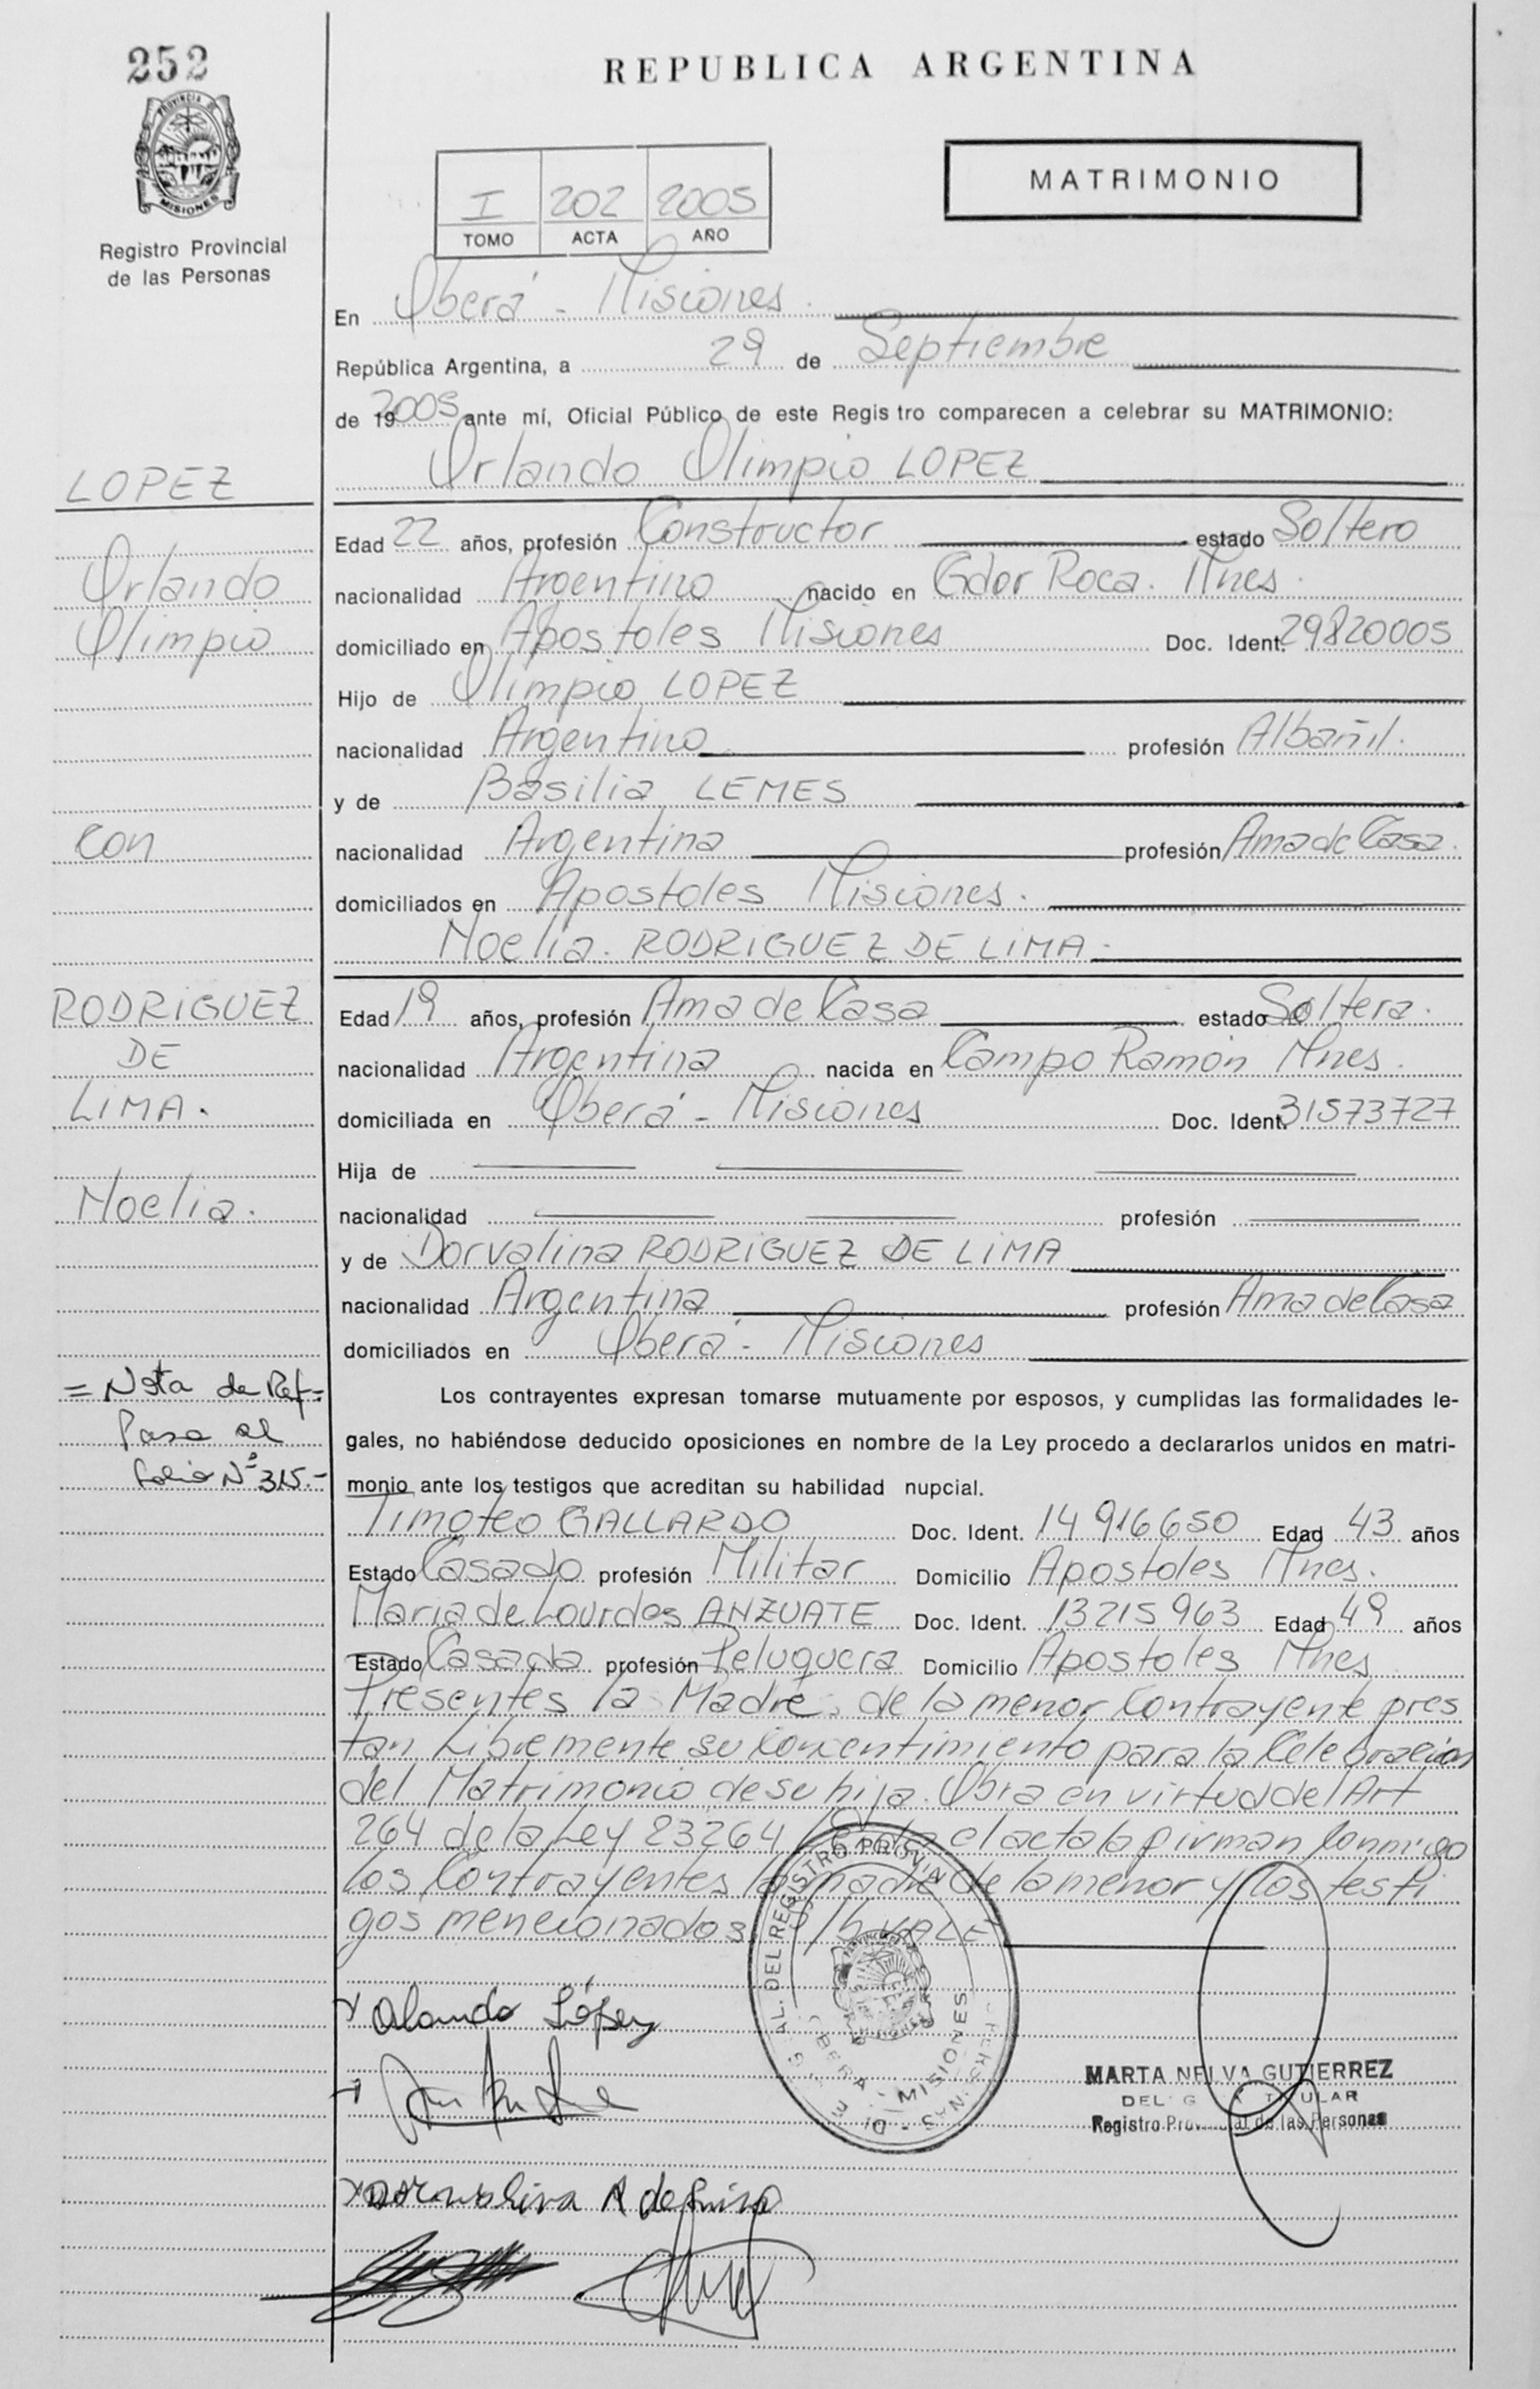 252
PROVINCIA DE
MISIONES
Registro Provincial
de las Personas
REPUBLICA ARGENTINA
MATRIMONIO
I 202 2005
TOMO ACTA AÑO
En Oberá - Misiones.
República Argentina, a 29 de Septiembre
de 19 2005 ante mí, Oficial Público de este Regis tro comparecen a celebrar su MATRIMONIO:
Orlando Olimpio LOPEZ
LOPEZ
Orlando
Olimpio
con
RODRIGUEZ
DE
LIMA.
Noelia.
= Nota de Ref =
Pasa al
folio Nº 315.-
Edad 22 años, profesión Constructor estado Soltero
nacionalidad Argentino nacido en Gdor Roca. Mnes.
domiciliado en Apostoles Misiones Doc. Ident. 29820005
Hijo de Olimpio LOPEZ
nacionalidad Argentino profesión Albañil.
y de Basilia LEMES
nacionalidad Argentina profesión Ama de Casa.
domiciliados en Apostoles Misiones.
Noelia. RODRIGUEZ DE LIMA.
Edad 19 años, profesión Ama de Casa estado Soltera.
nacionalidad Argentina nacida en Campo Ramon Mnes.
domiciliada en Oberá - Misiones Doc. Ident. 31573727
Hija de
nacionalidad profesión
y de Dorvalina RODRIGUEZ DE LIMA
nacionalidad Argentina profesión Ama de Casa
domiciliados en Oberá - Misiones
Los contrayentes expresan tomarse mutuamente por esposos, y cumplidas las formalidades le-
gales, no habiéndose deducido oposiciones en nombre de la Ley procedo a declararlos unidos en matri-
monio ante los testigos que acreditan su habilidad nupcial.
Timoteo GALLARDO Doc. Ident. 14916650 Edad 43 años
Estado Casado profesión Militar Domicilio Apostoles Mnes.
Maria de Lourdes ANZUATE Doc. Ident. 13215963 Edad 49 años
Estado Casada profesión Peluquera Domicilio Apostoles Mnes
Presentes la Madre de la menor Contrayente pres
tan Libremente su Concentimiento para la Celebracion
del Matrimonio de su hija. Obra en virtud del Art
264 de la Ley 23264 el acta la firman Conmigo
los Contrayentes la madre de la menor y los testi
gos mencionados VALE
Orlando López
MARTA NELVA GUTIERREZ
Registro Provincial de las Personas
DEL REGISTRO PROVIN
OBERA - MISIONES